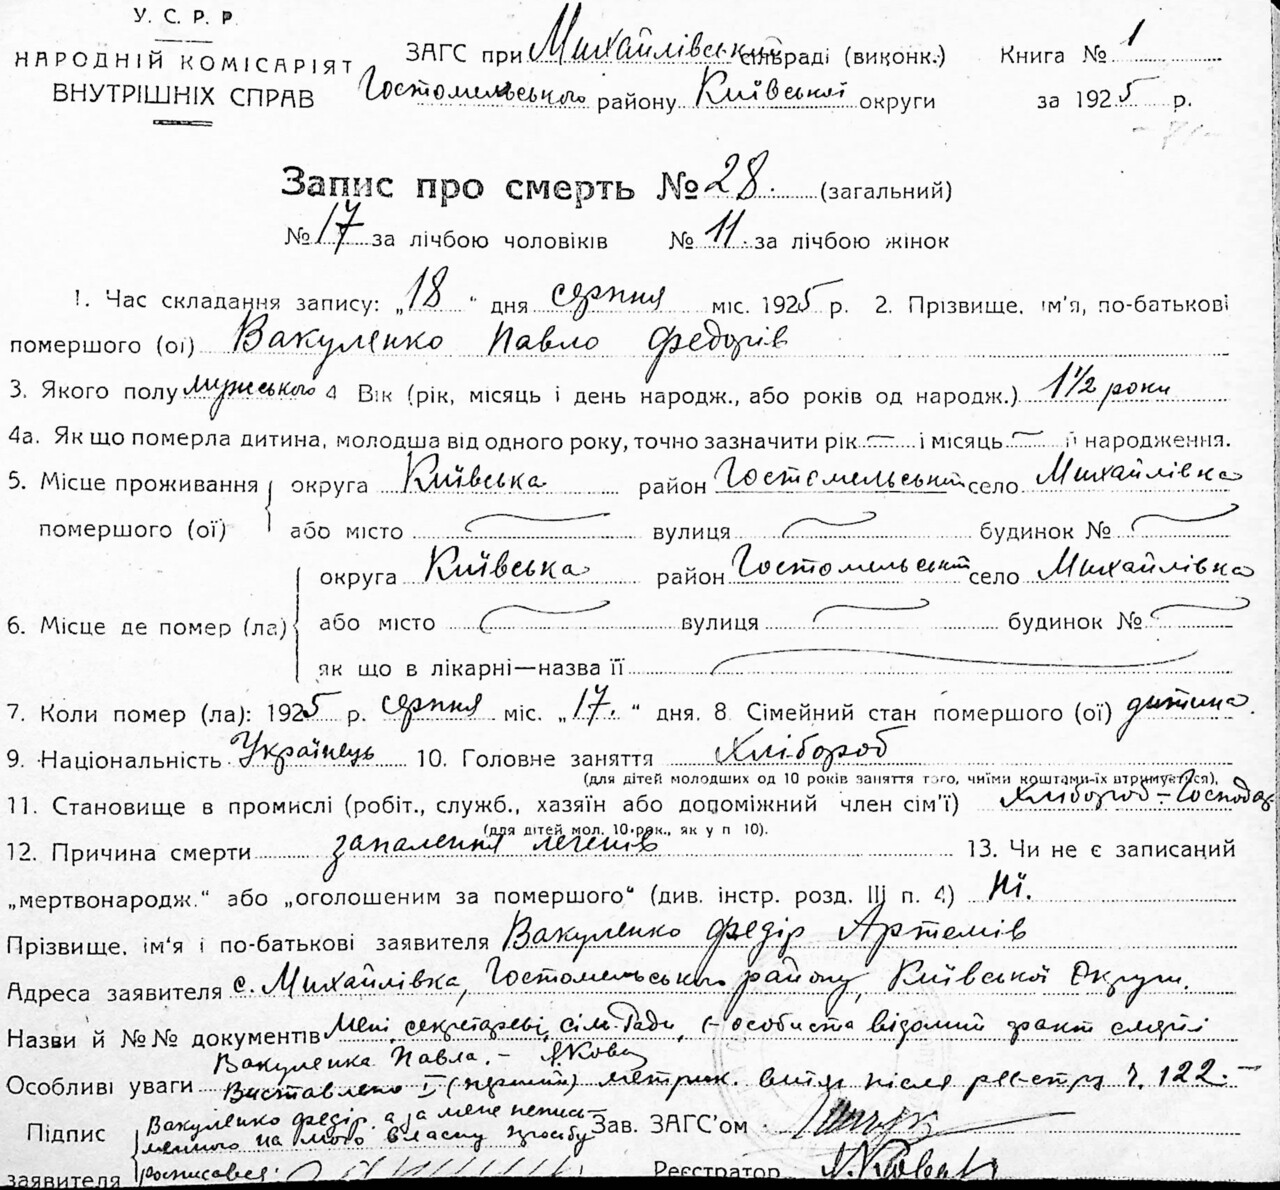 У. С. Р. Р
НАРОДНІЙ КОМІСАРІЯТ
ВНУТРІШНІХ СПРАВ
ЗАГС при Михайлівський сільраді (виконк.) Книга № 1
Гостомельського району Київської округи за 1925 р.
Запис про смерть № 28. (загальний)
№ 17 за лічбою чоловіків № 11. за лічбою жінок
1. Час складання запису: „18“ дня серпня міс. 1925 р. 2. Прізвище, ім'я, по-батькові
помершого (ої) Вакуленко Павло Федорів
3. Якого полу мужського 4 Вік (рік, місяць і день народж., або років од народж.) 1 1/2 роки
4а. Як що померла дитина, молодша від одного року, точно зазначити рік — і місяць — її народження.
5. Місце проживання округа Київська район Гостомельський село Михайлівка
помершого (ої) або місто вулиця будинок №
округа Київська район Гостомельський село Михайлівка
6. Місце де помер (ла) або місто вулиця будинок №
як що в лікарні—назва її
7. Коли помер (ла): 1925 р. серпня міс. „17.“ дня. 8 Сімейний стан помершого (ої) дитина.
9. Національність Українець 10. Головне заняття Хлібороб
(для дітей молодших од 10 років заняття того, чиїми коштами їх втримується).
11. Становище в промислі (робіт., служб., хазяїн або допоміжний член сім'ї) Хлібороб – Господар
(для дітей мол. 10 рок., як у п 10).
12. Причина смерти запалення легенів 13. Чи не є записаний
„мертвонародж.“ або „оголошеним за помершого“ (див. інстр. розд. III п. 4) Ні.
Прізвище, ім'я і по-батькові заявителя Вакуленко Федір Артемів
Адреса заявителя с. Михайлівка, Гостомельського району, Київської Округи.
Назви й №№ документів Мені, секретареві сіль-Ради, особисто відомий факт смерті
Вакуленка Павла. –
Особливі уваги Виставлено I (перший) метрик. витяг після реєстру ч. 122. –
Підпис Вакуленко Федір, а за мене непись-
менного на мою власну просьбу Зав. ЗАГС'ом
заявителя росписався: Реєстратор